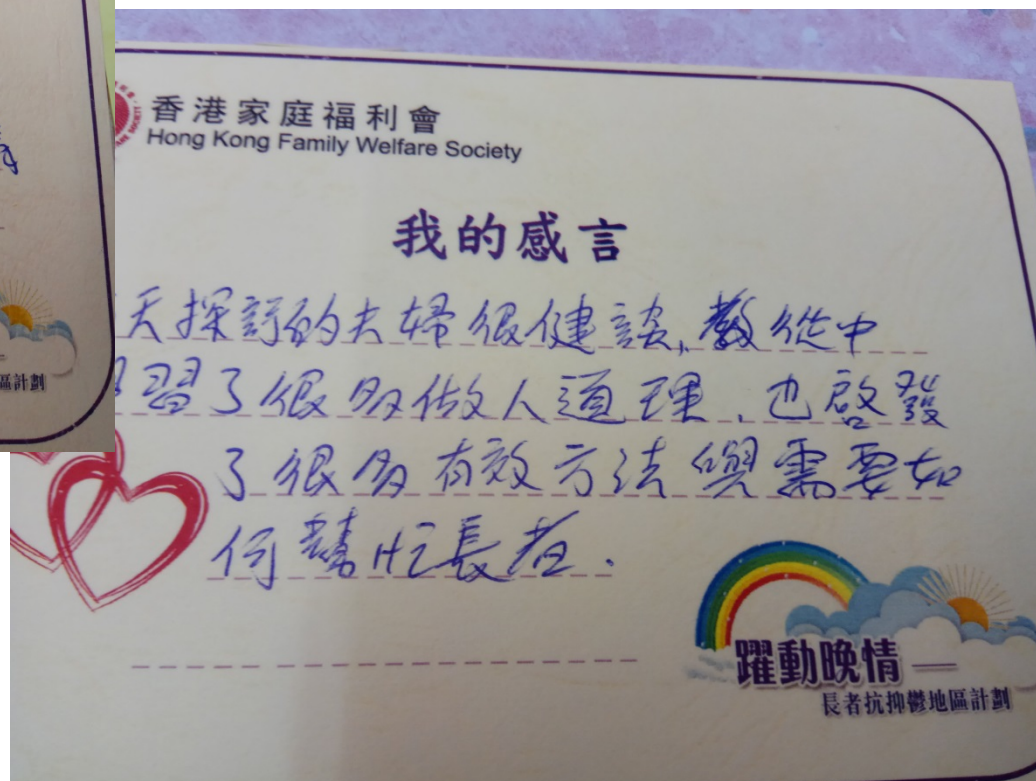 香港家庭福利會
Hong Kong Family Welfare Society
我的感言
天探訪的夫婦很健談,教從中
習了很多做人道理,也啓發
了很多有效方法與需要如
何幫忙長者.
躍動晚情
長者抗抑鬱地區計劃
區計劃